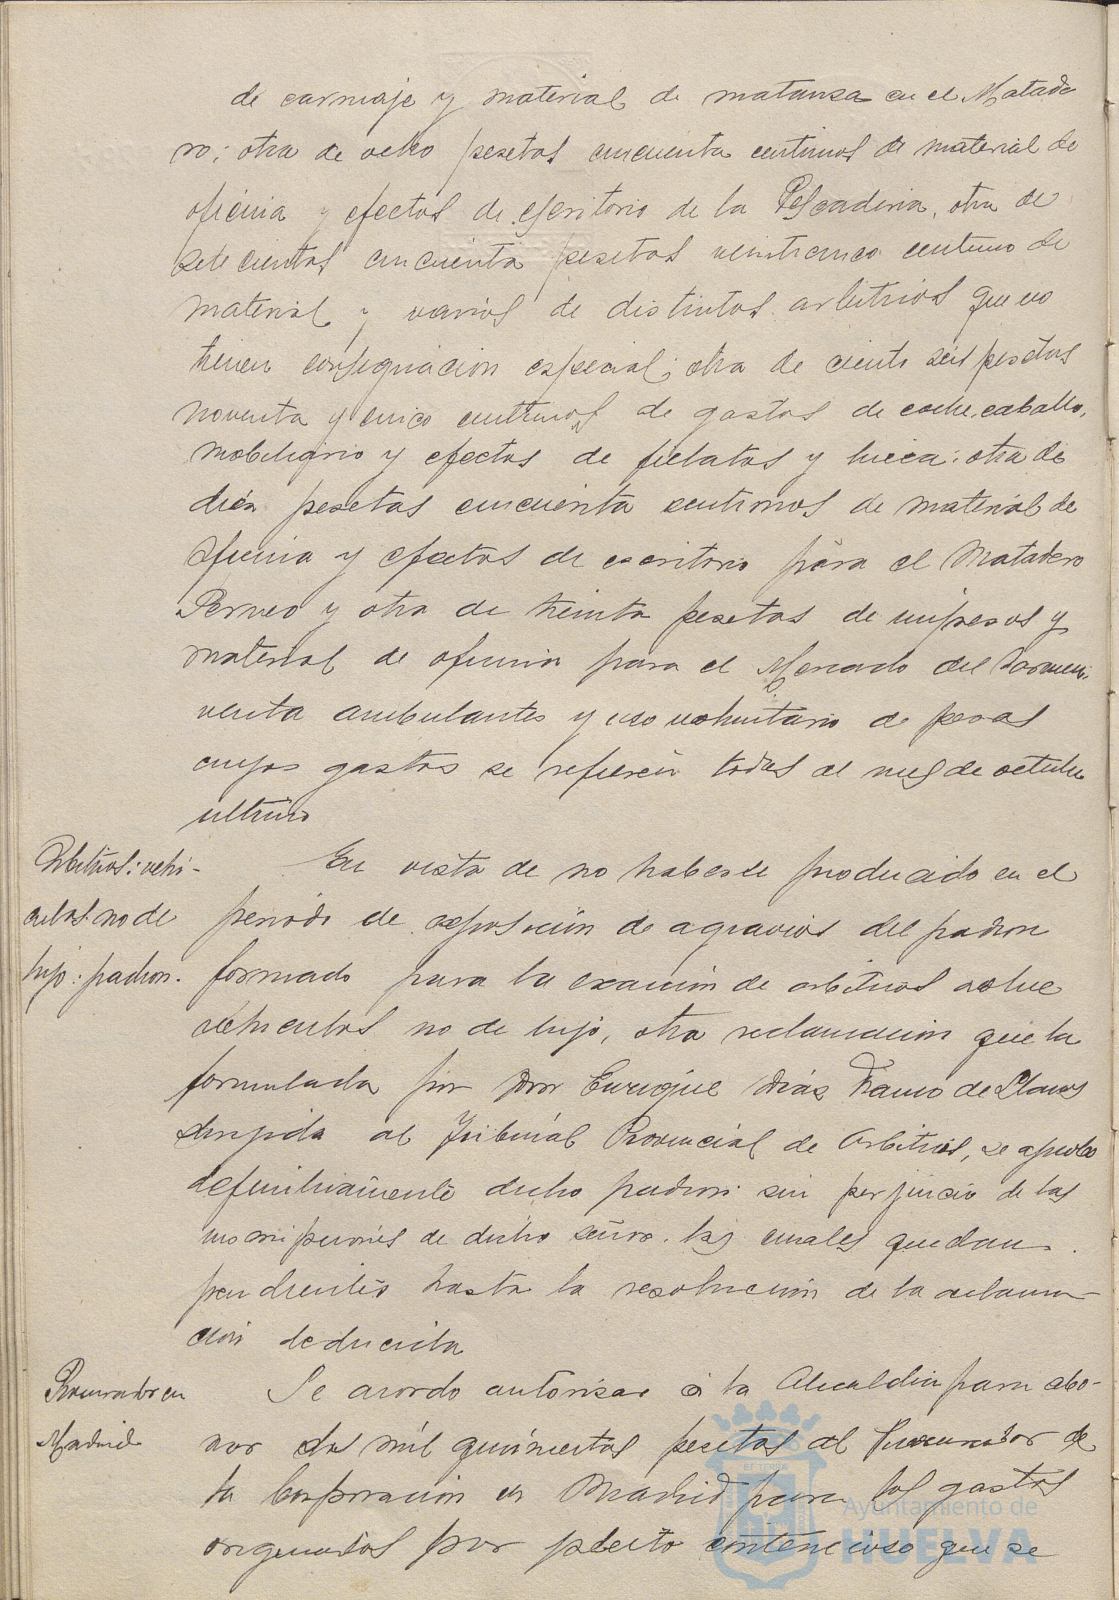 de carruaje y material de matanza en el Matade
ro; otra de ocho pesetas cincuenta centimos de material de
oficina y efectos de escritorio de la Pescaderia, otra de
setecientas cincuenta pesetas veinticinco centimo de
material y varios de distintos arbitrios que no
tienen consignacion especial; otra de ciento seis pesetas
noventa y cinco centimos de gastos de coche, caballo,
mobiliario y efectos de fielatos y linea; otra de
diez pesetas cincuenta centimos de material de
oficina y efectos de escritorio para el Matadero
y otra de treinta pesetas de impresos y
material de oficina para el Mercado del Carmen,
venta ambulantes y uso voluntario de pesas
cuyos gastos se refieren todos al mes de octubre
ultimo
Arbitrios: vehi-
culos no de
lujo: padron.
En vista de no haberse producido en el
periodo de exposición de agravios del padron
formado para la exacion de arbitrios sobre
vehiculos no de lujo, otra reclamacion que la
formulada por Don Enrique Diaz Franco de Llanos
dirigida al Tribunal Provincial de Arbitrios, se aprobo
definitivamente dicho padron sin perjuicio de las
inscripciones de dicho señor, las cuales quedan
pendientes hasta la resolucion de la reclama-
cion deducida
Procurador en
Madrid
Se acordo autorizar á la Alcaldia para abo-
nar dos mil quinientas pesetas al Procurador de
la Corporacion en Madrid para los gastos
originados por pleito contencioso que se
Ayuntamiento de
HUELVA